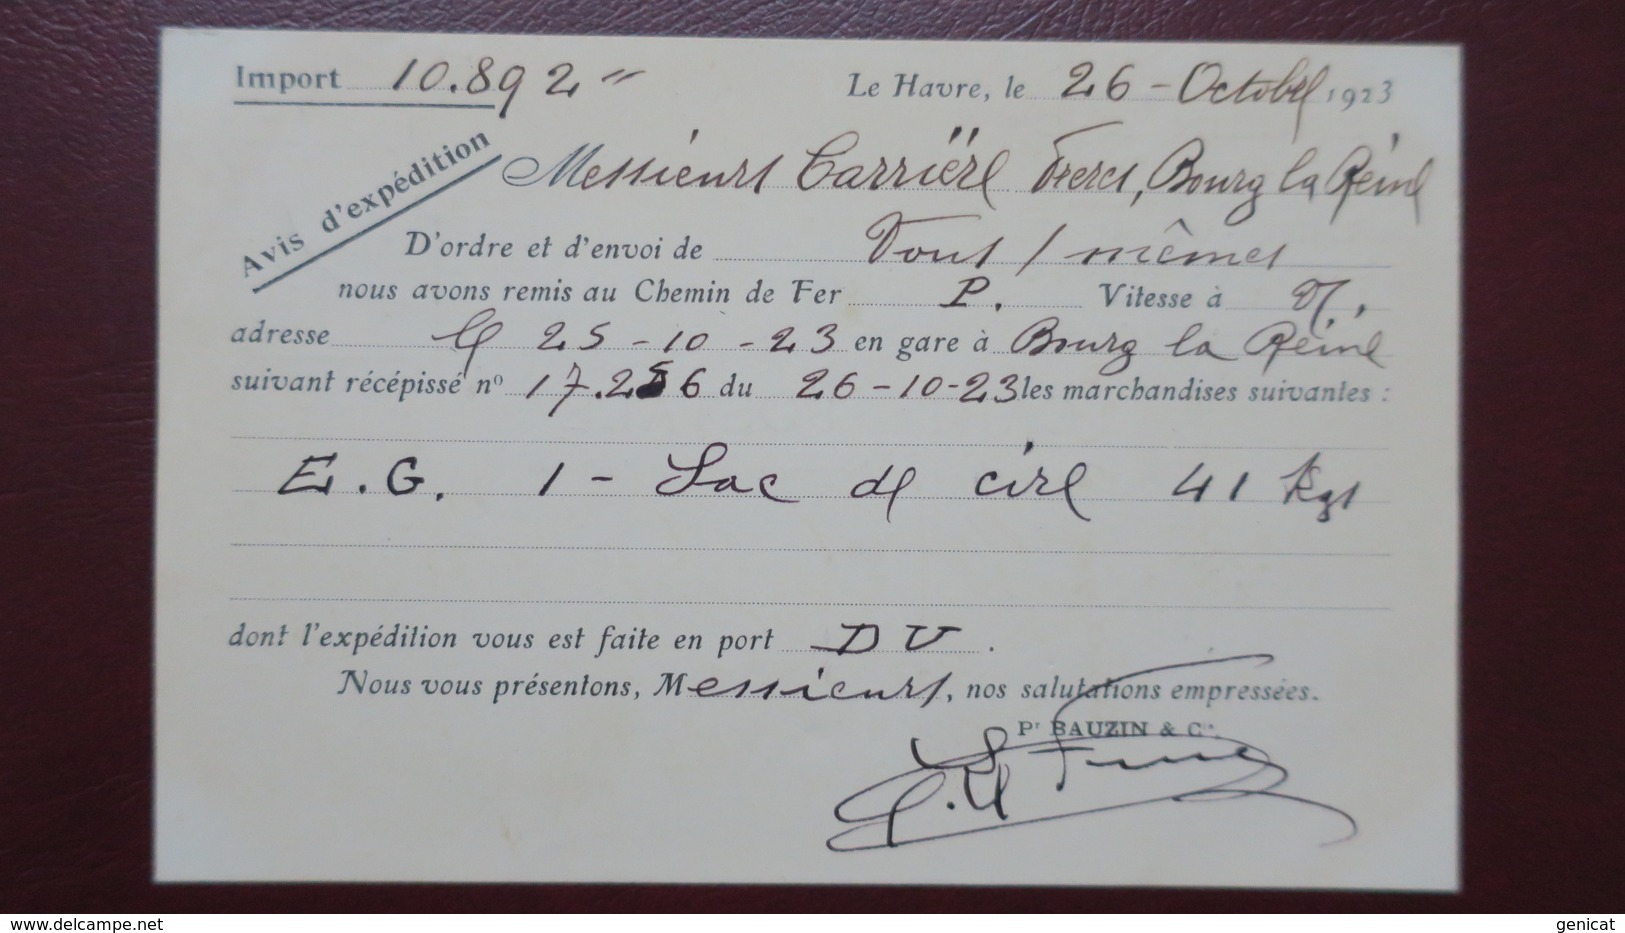 Import 10.892 "
Le Havre, le 26 - Octobre 1923
Avis d'expédition
Messieurs Carrière Freres, Bourg la Reine
D'ordre et d'envoi de Vous / mêmes
nous avons remis au Chemin de Fer P. Vitesse à V/.
adresse le 25-10-23 en gare à Bourg la Reine
suivant récépissé nº 17.256 du 26-10-23 les marchandises suivantes :
E.G. 1 - Sac de cire 41 kgs
dont l'expédition vous est faite en port DU.
Nous vous présentons, Messieurs, nos salutations empressées.
Pr BAUZIN & Cie.
www.delcampe.net
genicat